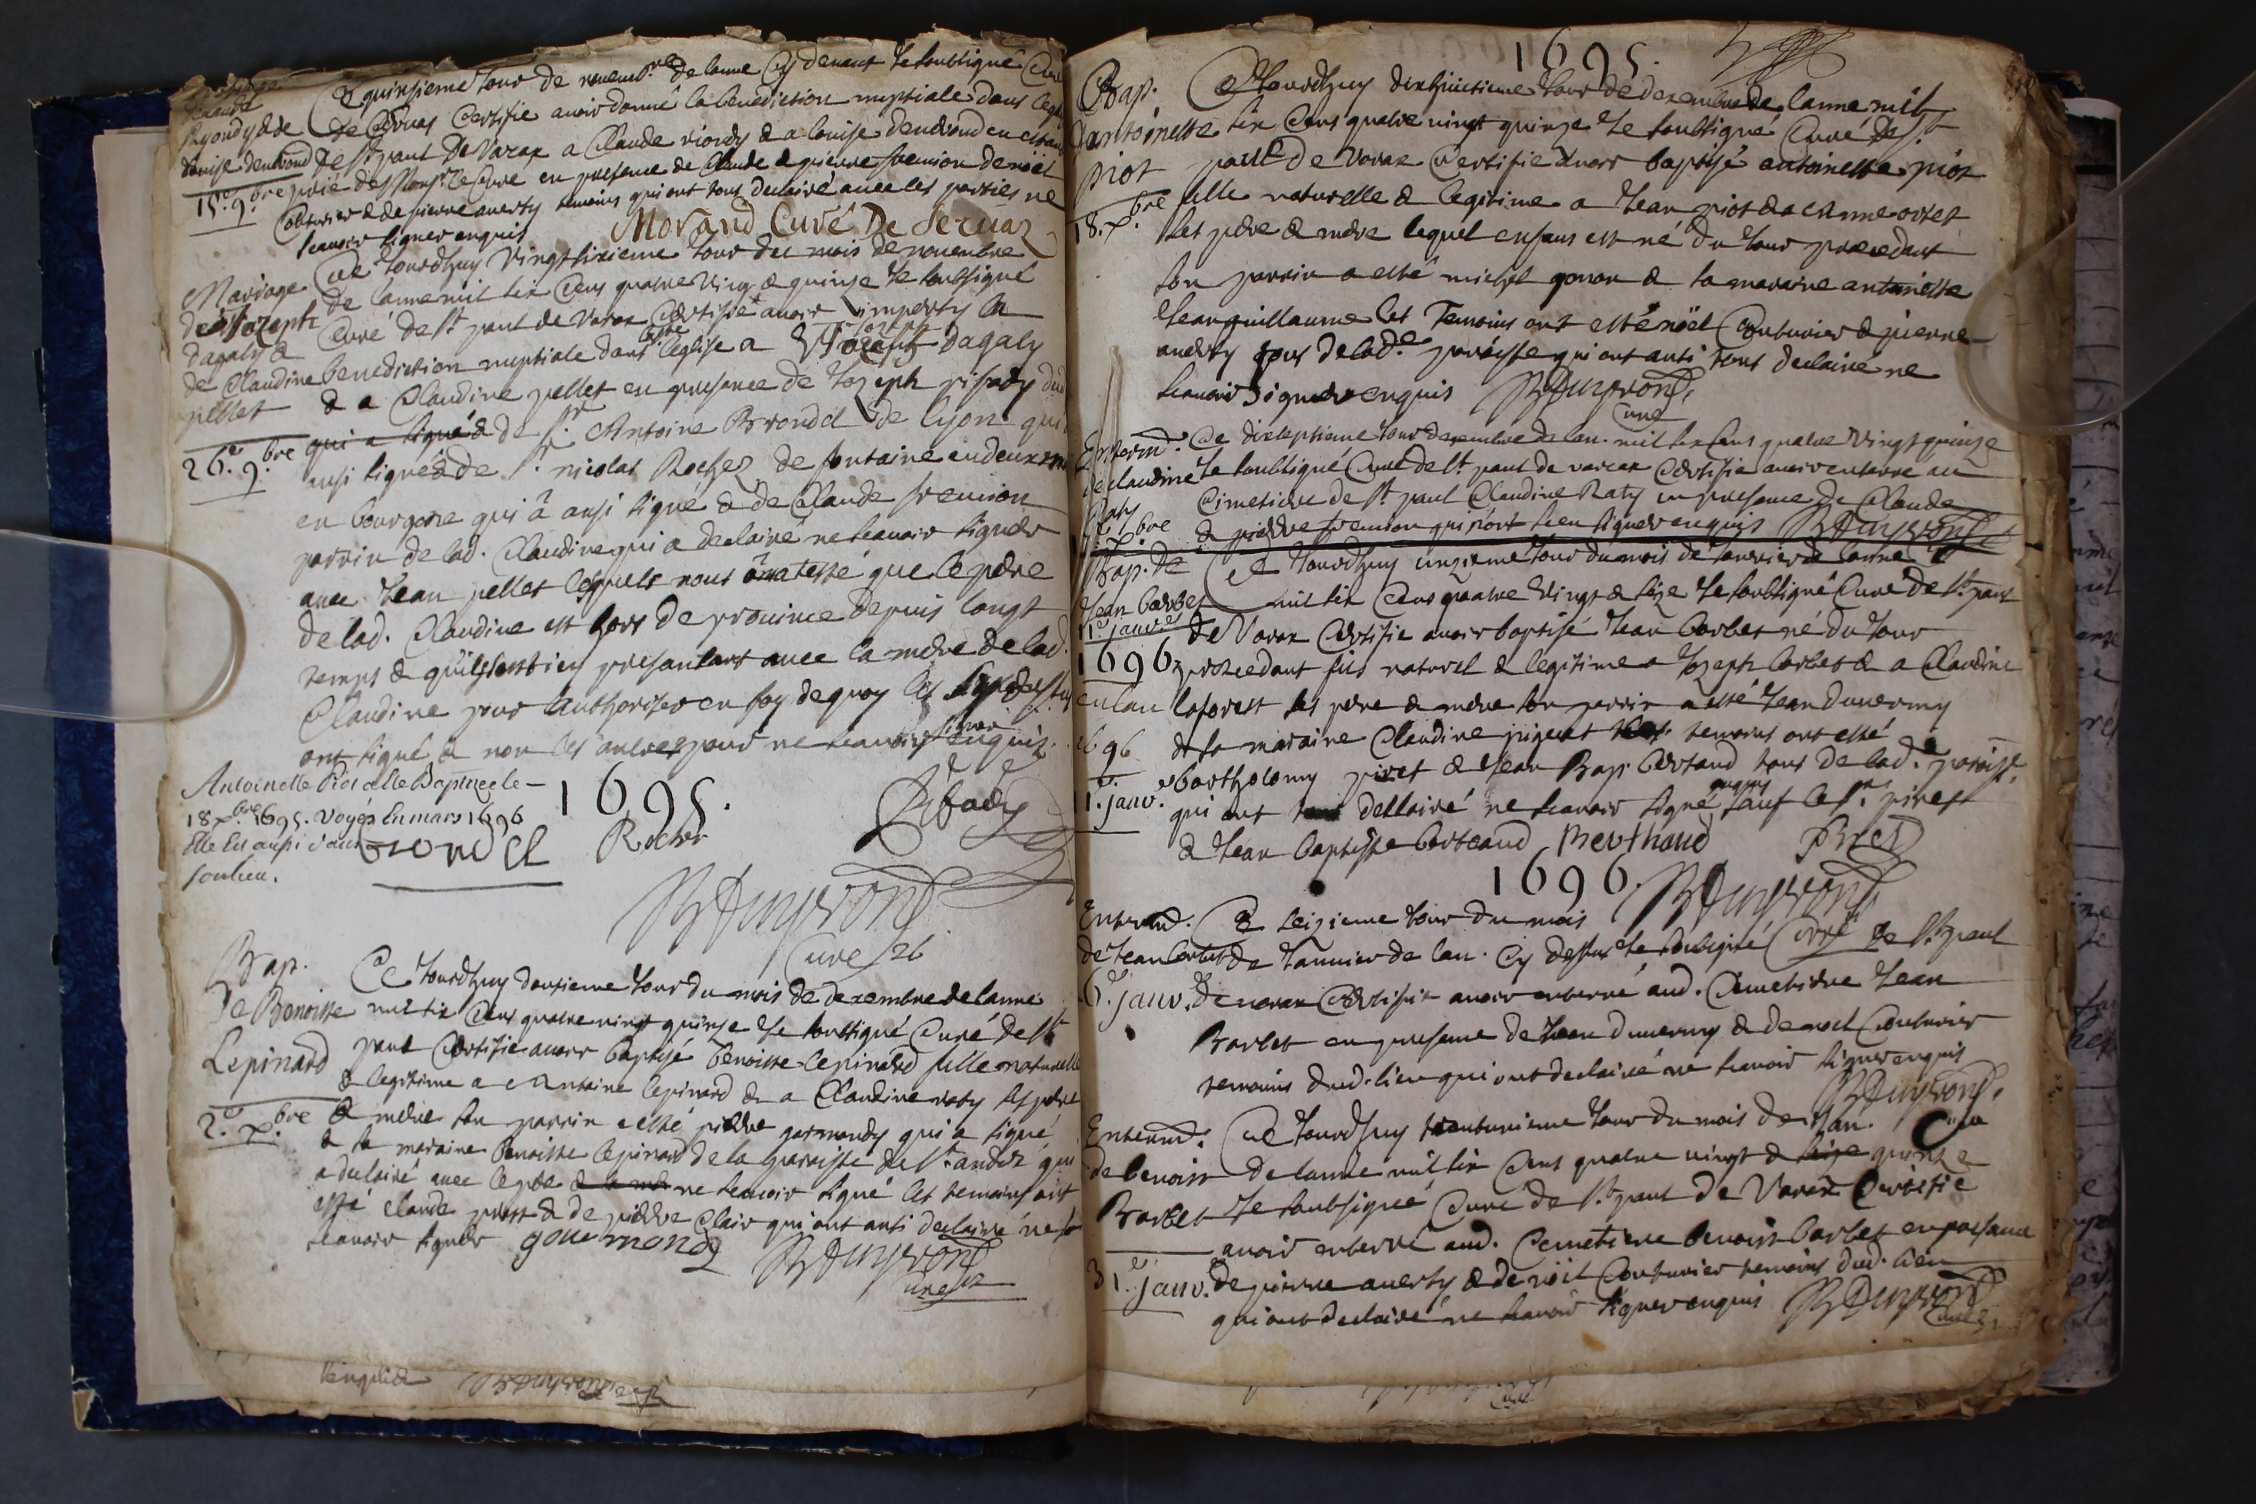 Ce quinsieme Jour de novembre de lanne Cy devant Je soubsigné Curé
de Servas Certifie avoir donné la benediction nuptiale dans leglise
de St paul De Varax a Claude riondy & a louise
prié de Monsr le Cure en presence de Claude & pierre fremion de noël
Couturier & de pierre averty temoins qui ont tous declairé avec les parties ne
scavoir signer enquis
Morand Curé De Servaz
15e 9bre
Mariage
de Jozeph
dagaly &
de Claudine
pellet
26e 9bre
Ce Jourdhuy Vingt sixieme Jour du mois de novembre
de lanne mil six Cens quatre Ving & quinze Je soubsigné
Curé de St paul de Varax Certifie avoir imparty la
benediction nuptiale dans leglise a Jozeph Dagaly
& a Claudine pellet en presence de Jozeph
qui a signé & de Sr Antoine Brondel de lyon qui
ausi signé & de Sr nicolas Rocher de fontaine
en bourgogne qui à ausi signé & de Claude fremion
parrin de lad. Claudine qui a declairé ne scavoir signer
avec Jean pellet lesquels nous ont atesté que le pere
de lad. Claudine est hors de province depuis longt
temps & quils sont icy presantans avec la mere de lad.
Claudine pour lauthoriser en foy de quoy les
ont signé & non les autres pour ne scavoir enquis.
Antoinette Piot estée Baptizée le
18 xbre 1695. Voyés en mars 1696
Elle est aussi
1695.
Brondel Rocher Ribody
BDuyvrond
Curé
Bap.
de Benoiste
Lepinard
2e xbre
Ce Jourdhuy dousieme Jour du mois de dexembre de lanne
mil six Cens quatre vingt quinze Je soubsigné Curé de St
paul Certifie avoir baptisé benoiste lepinard fille naturelle
& legitime a Antoine lepinard & a Claudine raty ses pere
& mere son parrin a esté pierre gormondy qui a signé
& la maraine benoiste lepinard de la paroisse de St andré qui
a declairé avec le pere ne scavoir signé les temoins ont
esté claude prost & de pierre Clair qui ont ausi declairé ne
scavoir signer gourmondy BDuyvrond
Curé
1695.
Bap.
dantoinette
piot
18. xbre
Ce Jourdhuy dixhuictieme Jour de dexembre de lanne mil
six Cens quatre vingt quinze Je soubsigné Curé de St
paul de Varax Certifie avoir baptisé antoinette piot
fille naturelle & legitime a Jean piot & a Anne
ses pere & mere lequel enfant est né du Jour precedent
son parrin a esté michel gonon & sa maraine antoinette
Jeanguillaume les Temoins ont esté nöel Couturier & pierre
averty tous de lade paroisse qui ont ausi tous declairé ne
scavoir Signer enquis BDuyvrond,
Curé
Enterrem.
de claudine
Raty
xbre
Ce dixseptieme Jour dexembre de lan mil six Cens quatre Vingt quinze
Je soubsigné Curé de St paul de varax Certifie avoir enterré au
Cimetiere de St paul Claudine Raty en presence de Claude
& pierre fremion qui n'ont sceu signer enquis BDuyvrond
Bap. de
Jean barbet
11e janver
1696
en lan
1696
11. janv.
Ce Jourdhuy unzieme Jour du mois de Janvier de lanne
mil six Cens quatre Vingt & seze Je soubsigné Curé de St paul
de Varax Certifie avoir baptisé Jean barbet né du Jour
precedant fils naturel & legitime a Jozeph barbet & a Claudine
laforest ses pere & mere son parrin a esté Jean duvermy
& sa maraine Claudine temoins ont esté
bartholomy piret & Jean Bap. bertaud tous de lade paroisse
qui ont declairé ne scavoir signé sauf le Sr piret
& Jean baptiste berteaud Berthaud Piret
1696. BDuyvrond
Enterrem.
de Jean barbet
16e janv.
Ce seizieme Jour du mois
de Janvier de lan Cy dessus Je soubsigné Curé de St paul
de varax Certifie avoir enterré aud. Cimetiere Jean
Barbet en presence de Jean duvermy & de noel Couturier
temoins dud. lieu qui ont declairé ne scavoir signer enquis
BDuyvrond,
Curé
Enterrem.
de benoist
Barbet
31e janv.
Ce Jourdhuy trenteunieme Jour du mois de Jan.
de lanne mil six Cens quatre vingt & seze quinze
Je soubsigné Curé de St paul de Varax Certifie
avoir enterré aud. Cemetiere benoist barbet en presence
de pierre averty & de nöel Couturier temoins dud. lieu
qui ont declairé ne scavoir signer enquis BDuyvrond
Curé